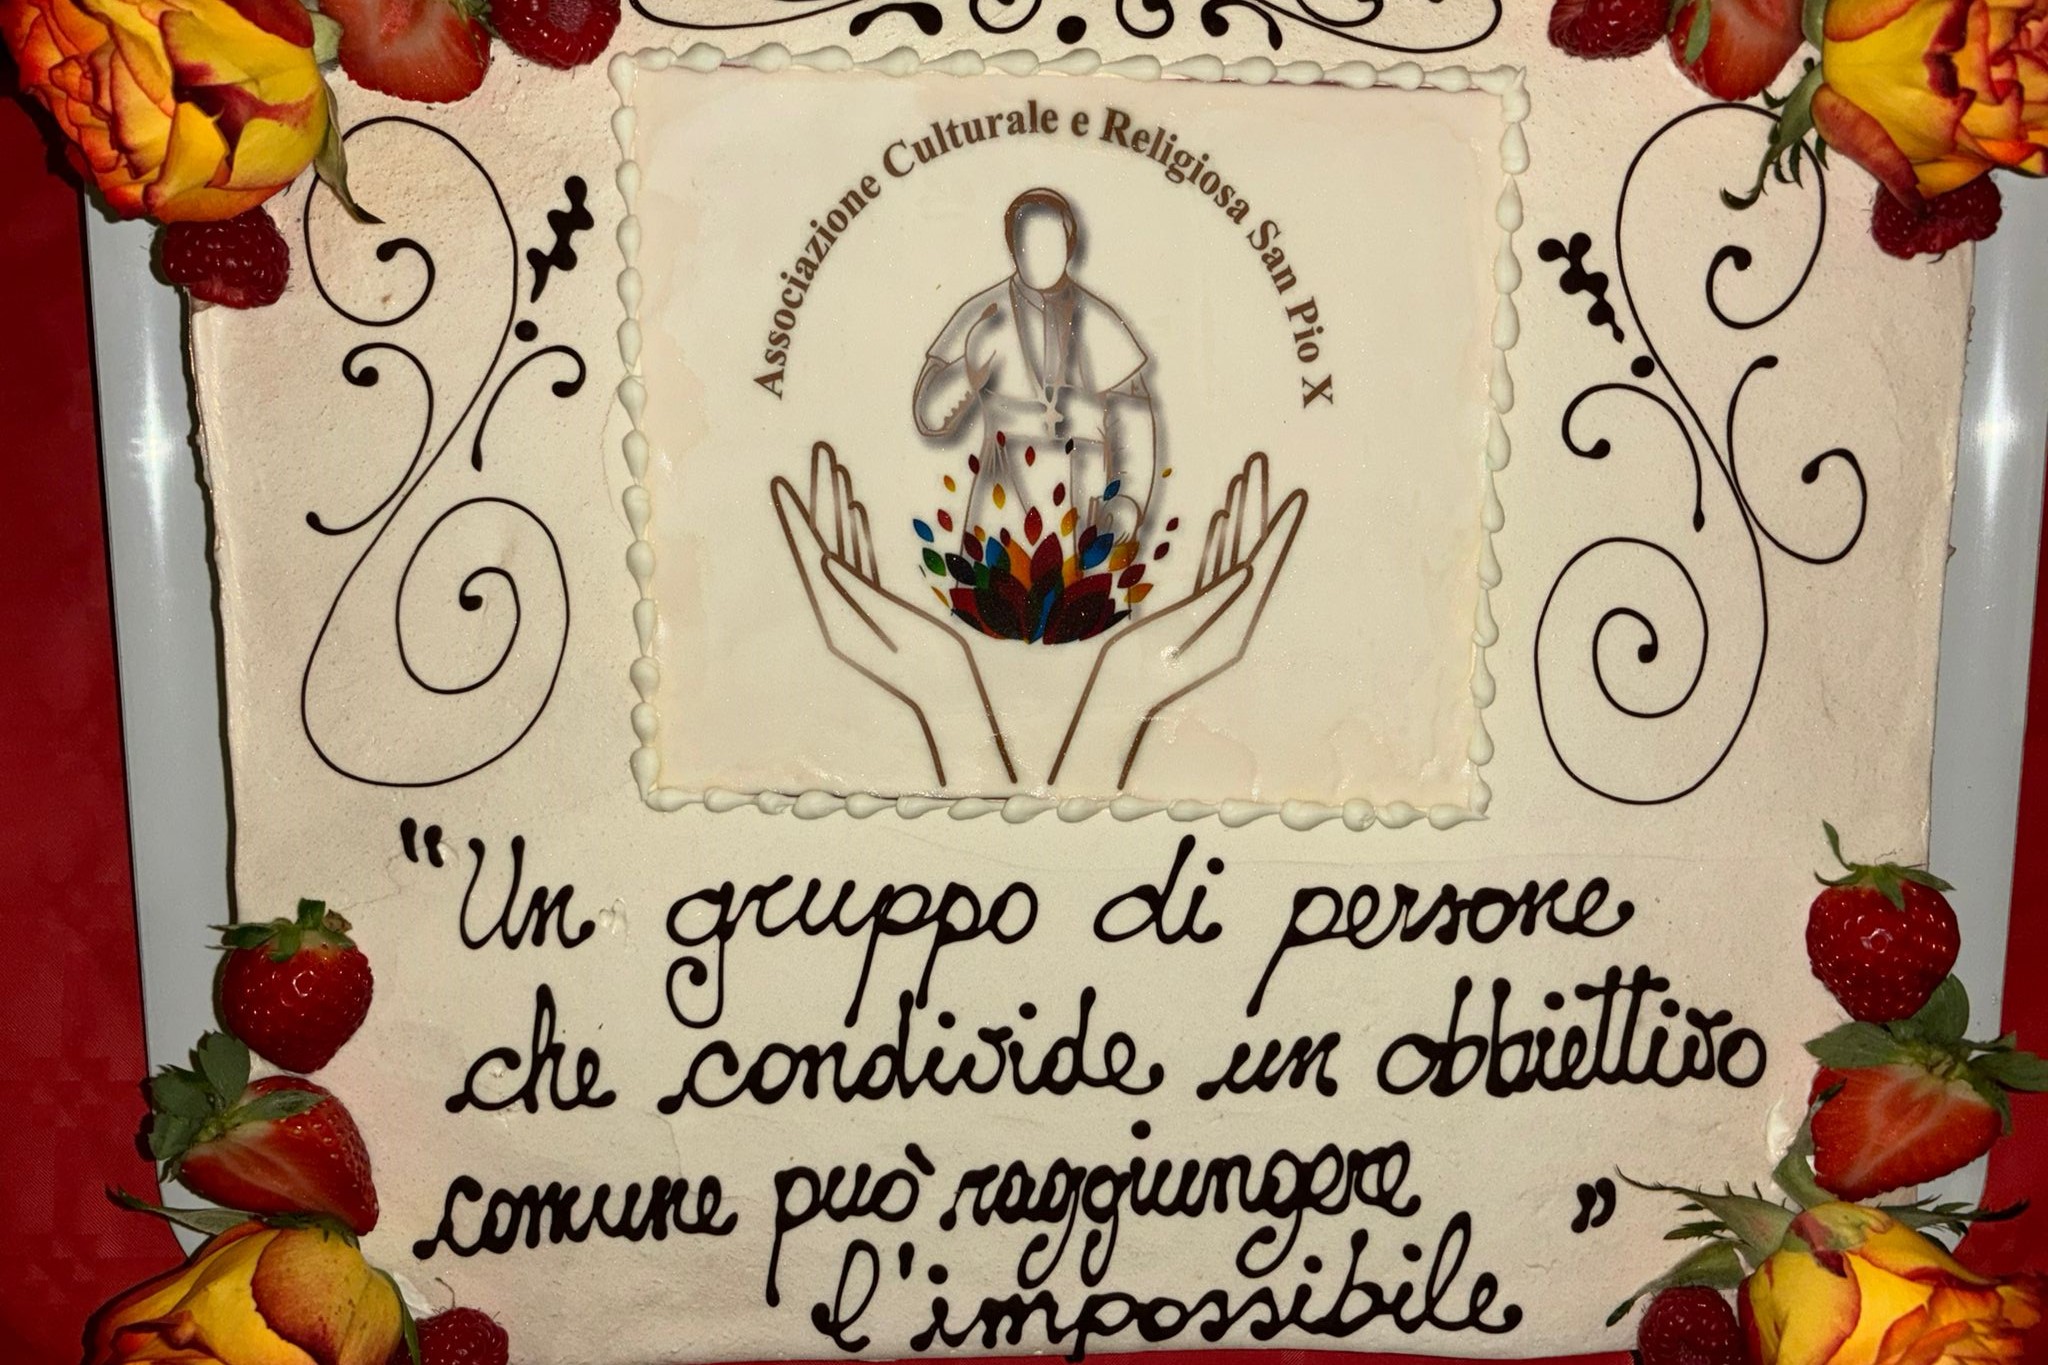 Associazione Culturale e Religiosa San Pio X
"Un gruppo di persone
che condivide un obbiettivo
comune può raggiungere
l'impossibile"